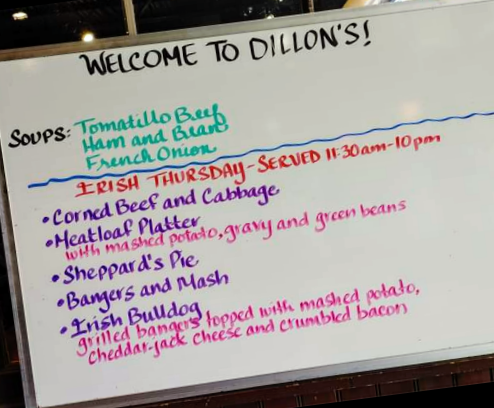 WELCOME TO DILLON'S!
SOUPS: Tomatillo Beef
Ham and Bean
French Onion
IRISH THURSDAY-SERVED 11:30am-10pm
•Corned Beef and Cabbage
•Meatloaf Platter
with mashed potato, gravy and green beans
•Sheppard's Pie
•Bangers and Mash
•Irish Bulldog
grilled bangers topped with mashed potato,
cheddar-jack cheese and crumbled bacon